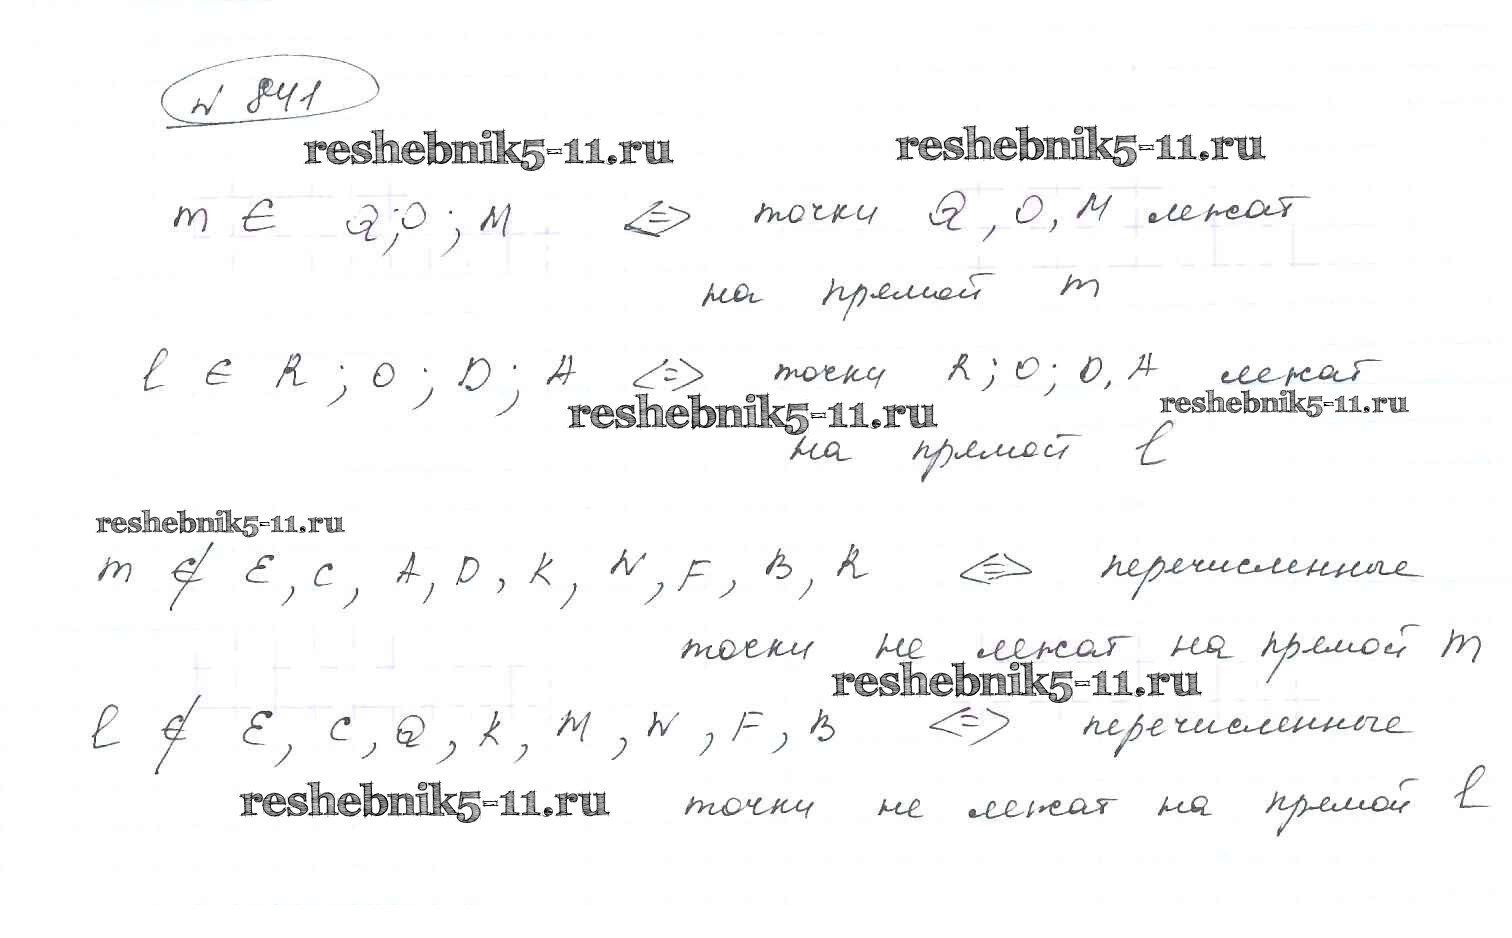 № 841
reshebnik5-11.ru reshebnik5-11.ru
m ∈ Q; O; M <=> точки Q, O, M лежат
на прямой m
l ∈ R; O; D; A <=> точки R; O; D, A лежат
reshebnik5-11.ru reshebnik5-11.ru
на прямой l
reshebnik5-11.ru
m ∉ E, C, A, D, K, N, F, B, R <=> перечисленные
точки не лежат на прямой m
reshebnik5-11.ru
l ∉ E, C, Q, K, M, N, F, B <=> перечисленные
reshebnik5-11.ru точки не лежат на прямой l